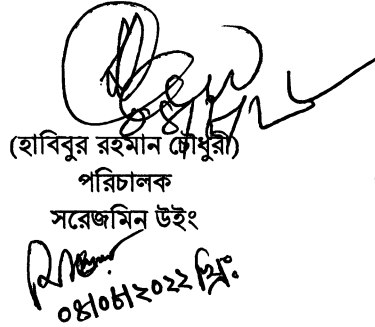 (হাবিবুর রহমান চৌধুরী)
পরিচালক
সরেজমিন উইং
০৪/০৮/২০২২ খ্রি: